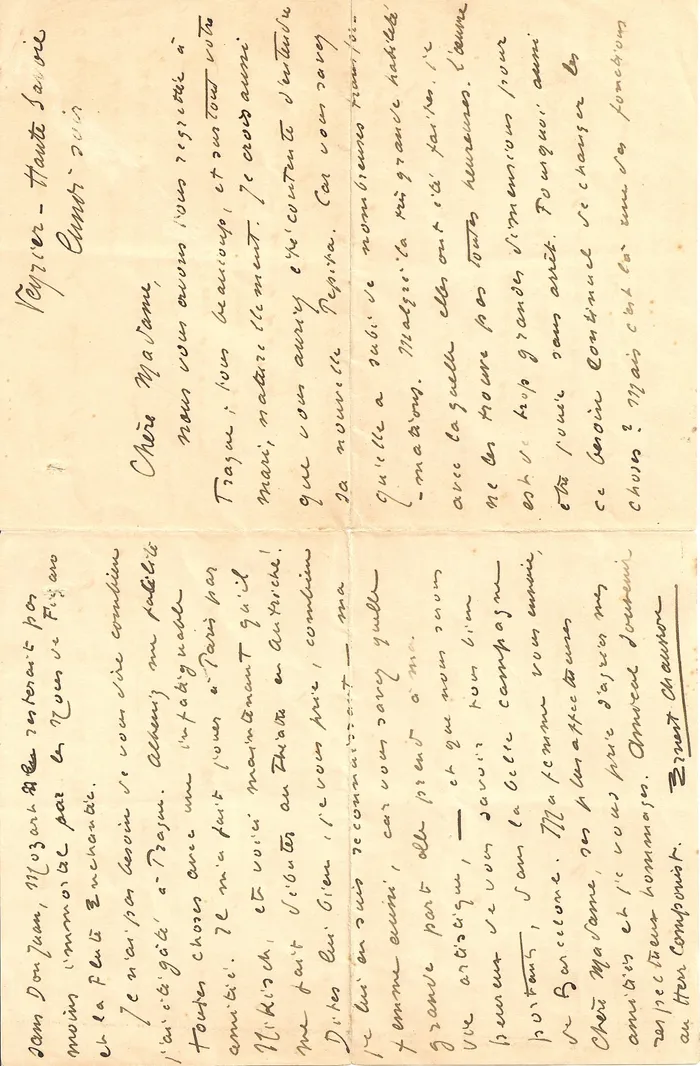 Veyrier – Haute Savoie
Lundi soir
Chère Madame,
nous vous avons tous regrettée à
Prague ; tous beaucoup, et surtout votre
mari, naturellement. Je crois aussi
que vous auriez été contente d'entendre
sa nouvelle Pepita. Car vous savez
qu'elle a subi de nombreuses transfor-
-mations. Malgré la très grande habileté
avec laquelle elles ont été faites, je
ne les trouve pas toutes heureuses. L'œuvre
est de trop grandes dimensions pour
être jouée sans arrêt. Pourquoi aussi
ce besoin continuel de changer les
choses ? Mais c'est là une des fonctions
sans DonJuan, Mozart ne resterait pas
moins immortel par les Noces de Figaro
et la Flute Enchantée.
Je n'ai pas besoin de vous dire combien
j'ai été gâté à Prague. Albeniz me facilite
toutes choses avec une infatigable
amitié. Il m'a fait jouer à Paris par
Nikisch, et voici maintenant qu'il
me fait débuter au Théatre en Autriche !
Dites lui bien, je vous prie, combien
je lui en suis reconnaissant — ma
femme aussi, car vous savez quelle
grande part elle prend à ma
vie artistique, — et que nous serons
heureux de vous savoir tous bien
portants, dans la belle campagne
de Barcelone. Ma femme vous envoie,
Chère Madame, ses plus affectueuses
amitiés et je vous prie d'agréer mes
respectueux hommages. Amical souvenir
au Herr Componist. Ernest Chausson